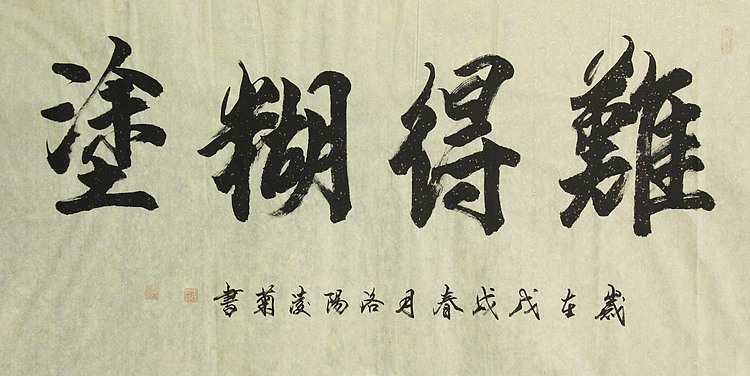 難得糊塗
歲在戊戌春月洛陽凌菊書